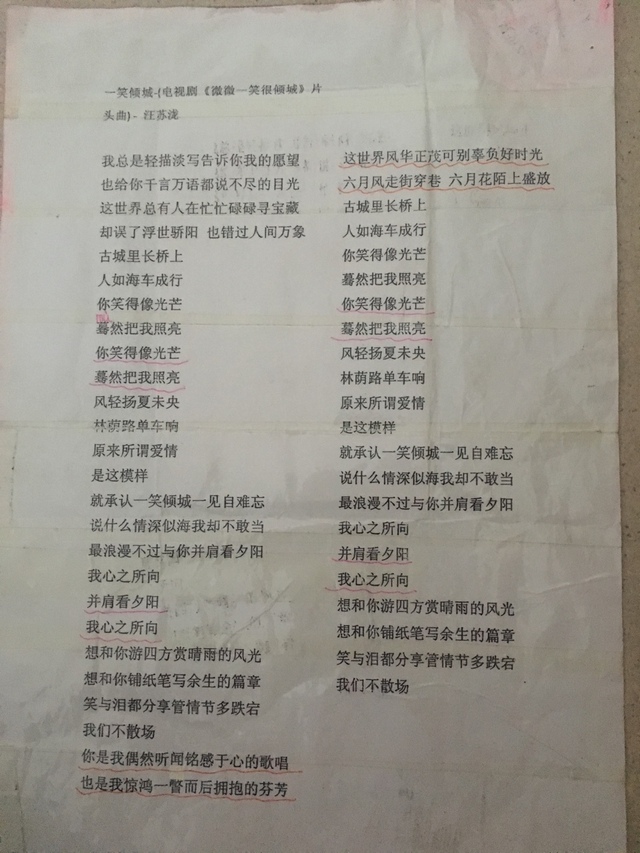 一笑倾城-{电视剧《微微一笑很倾城》片
头曲} - 汪苏泷
我总是轻描淡写告诉你我的愿望
也给你千言万语都说不尽的目光
这世界总有人在忙忙碌碌寻宝藏
却误了浮世骄阳 也错过人间万象
古城里长桥上
人如海车成行
你笑得像光芒
蓦然把我照亮
你笑得像光芒
蓦然把我照亮
风轻扬夏未央
林荫路单车响
原来所谓爱情
是这模样
就承认一笑倾城一见自难忘
说什么情深似海我却不敢当
最浪漫不过与你并肩看夕阳
我心之所向
并肩看夕阳
我心之所向
想和你游四方赏晴雨的风光
想和你铺纸笔写余生的篇章
笑与泪都分享管情节多跌宕
我们不散场
你是我偶然听闻铭感于心的歌唱
也是我惊鸿一瞥而后拥抱的芬芳
这世界风华正茂可别辜负好时光
六月风走街穿巷 六月花陌上盛放
古城里长桥上
人如海车成行
你笑得像光芒
蓦然把我照亮
你笑得像光芒
蓦然把我照亮
风轻扬夏未央
林荫路单车响
原来所谓爱情
是这模样
就承认一笑倾城一见自难忘
说什么情深似海我却不敢当
最浪漫不过与你并肩看夕阳
我心之所向
并肩看夕阳
我心之所向
想和你游四方赏晴雨的风光
想和你铺纸笔写余生的篇章
笑与泪都分享管情节多跌宕
我们不散场